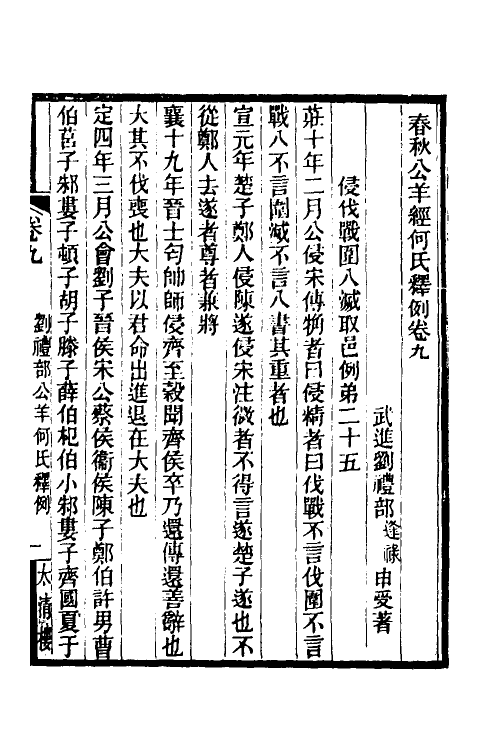 春秋公羊經何氏釋例卷九
武進劉禮部逢祿申受著
侵伐戰圍入滅取邑例弟二十五
莊十年二月公侵宋傳觕者曰侵精者曰伐戰不言伐圍不言
戰入不言圍滅不言入書其重者也
宣元年楚子鄭人侵陳遂侵宋注微者不得言遂楚子遂也不
從鄭人去遂者尊者兼將
襄十九年晉士匄帥師侵齊至穀聞齊侯卒乃還傳還善辭也
大其不伐喪也大夫以君命出進退在大夫也
定四年三月公會劉子晉侯宋公蔡侯衞侯陳子鄭伯許男曹
伯莒子邾婁子頓子胡子滕子薛伯杞伯小邾婁子齊國夏于
卷九
劉禮部公羊何氏釋例
一
太清樓